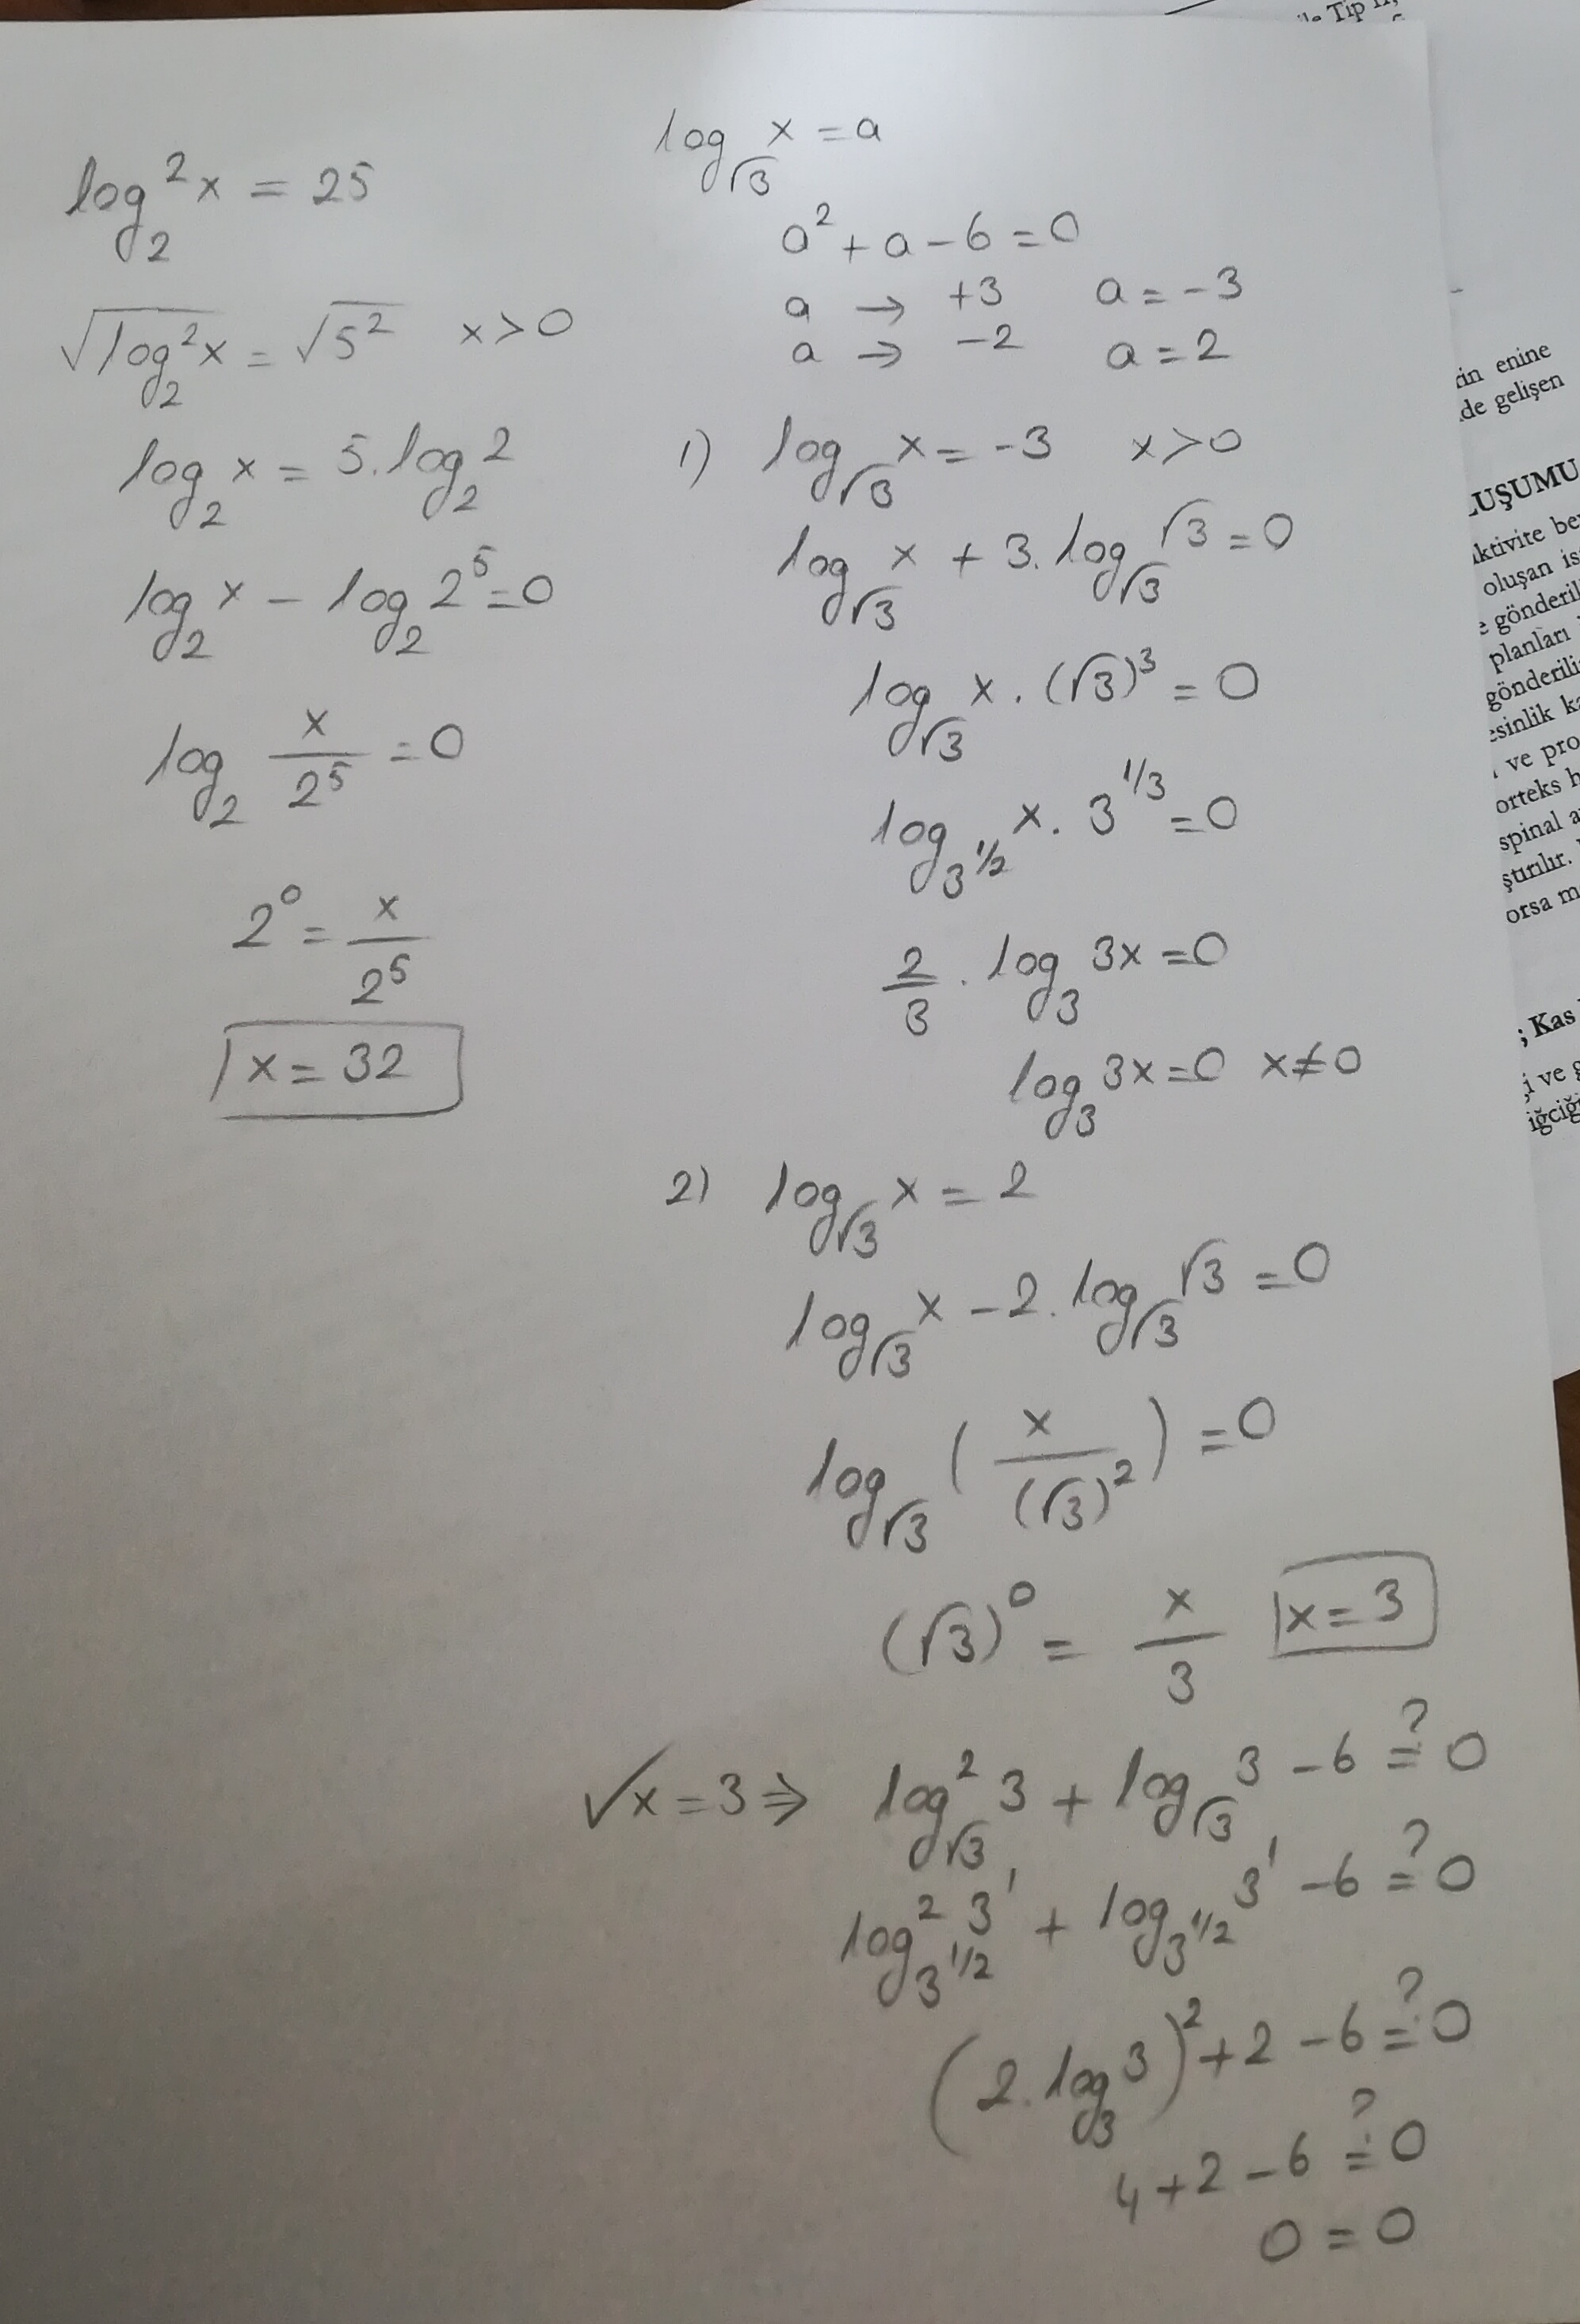 log₂²x = 25
√(log₂²x) = √(5²) x>0
log₂x = 5.log₂2
log₂x − log₂2⁵ = 0
log₂ x/2⁵ = 0
2⁰ = x/2⁵
x = 32
log_√3 x = a
a² + a − 6 = 0
a → +3 a = −3
a → −2 a = 2
1) log_√3 x = −3 x>0
log_√3 x + 3.log_√3 √3 = 0
log_√3 x.(√3)³ = 0
log_3^1/2 x.3^1/3 = 0
2/3 . log₃ 3x = 0
log₃ 3x = 0 x≠0
2) log_√3 x = 2
log_√3 x − 2.log_√3 √3 = 0
log_√3 (x/(√3)²) = 0
(√3)⁰ = x/3 x = 3
✓x = 3 ⇒ log²_√3 3 + log_√3 3 − 6 =? 0
log²_3^1/2 3¹ + log_3^1/2 3¹ − 6 =? 0
(2.log₃3)² + 2 − 6 =? 0
4 + 2 − 6 =? 0
0 = 0
Tip
rin enine
de gelişen
LUŞUMU
oluşan
gönderil
planları
gönderili
esinlik
ve pro
orteks
spinal
ştırılır.
orsa
; Kas
ve
iğciği